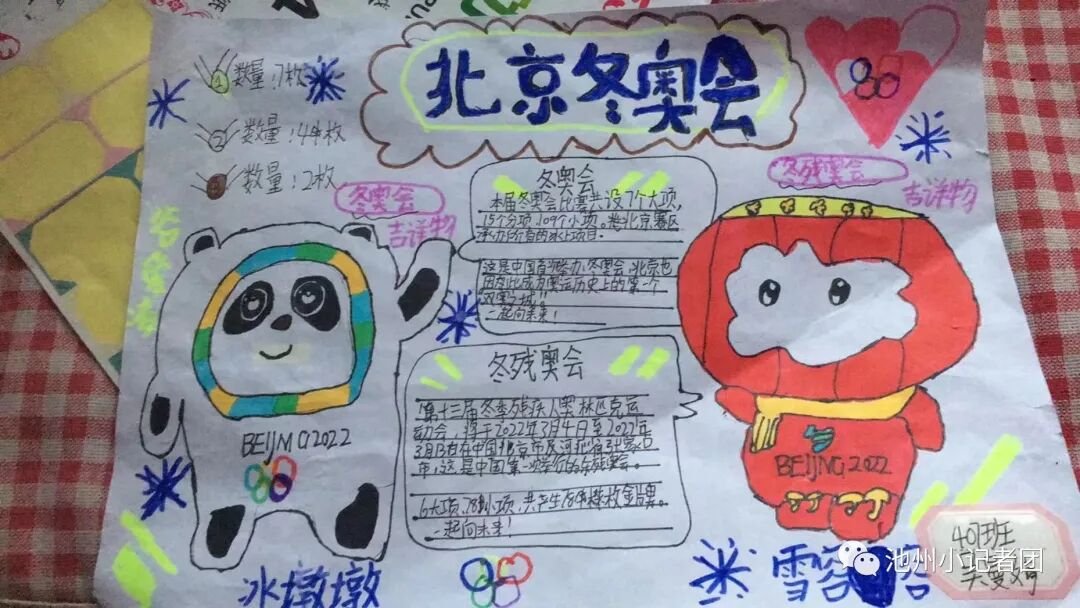 北京冬奥会
1 数量:7枚
2 数量:44枚
3 数量:2枚
冬奥会
吉祥物
冬残奥会
吉祥物
冬奥会
本届冬奥会比赛共设7个大项,
15个分项,109个小项。北京赛区
承办所有的冰上项目。
这是中国首次举办冬奥会,北京也
因此成为奥运历史上的第一个
双奥之城!!
一起向未来!
冬残奥会
第十三届冬季残疾人奥林匹克运
动会,将于2022年3月4日至2022年
3月13日在中国北京市及河北省张家口
市,这是中国第一次举行的冬残奥会。
6大项,78小项,共产生78枚金牌。
一起向未来!
BEIJING2022
BEIJING2022
冰墩墩
雪容
401班
池州小记者团